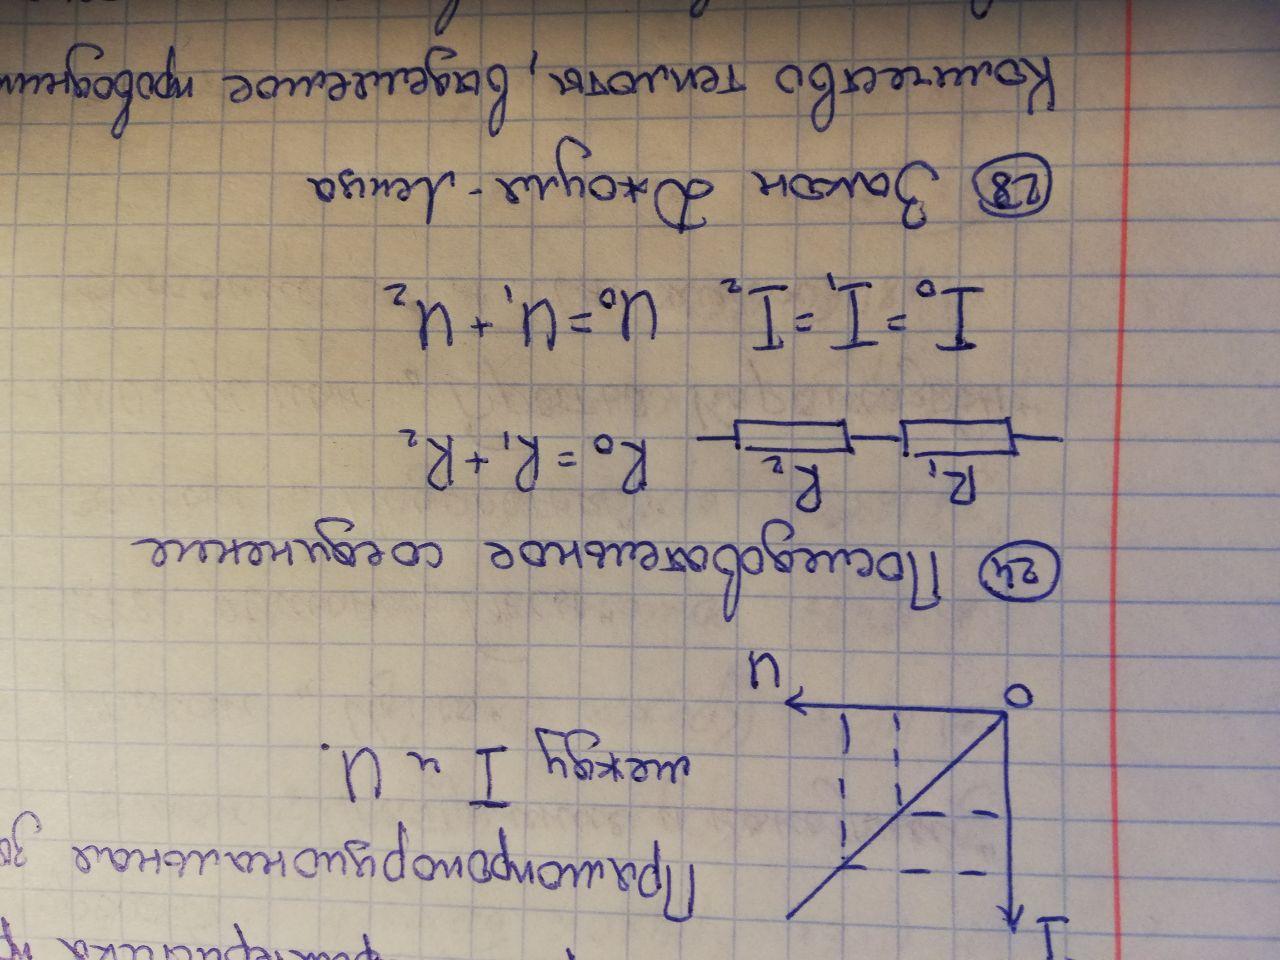 I
Прямопропорциональная
между I и U.
0
U
24 Последовательное соединение
R₁ R₂ R₀ = R₁ + R₂
I₀ = I₁ = I₂ U₀ = U₁ + U₂
28 Закон Джоуля-Ленца
Количество теплоты, выделяемое